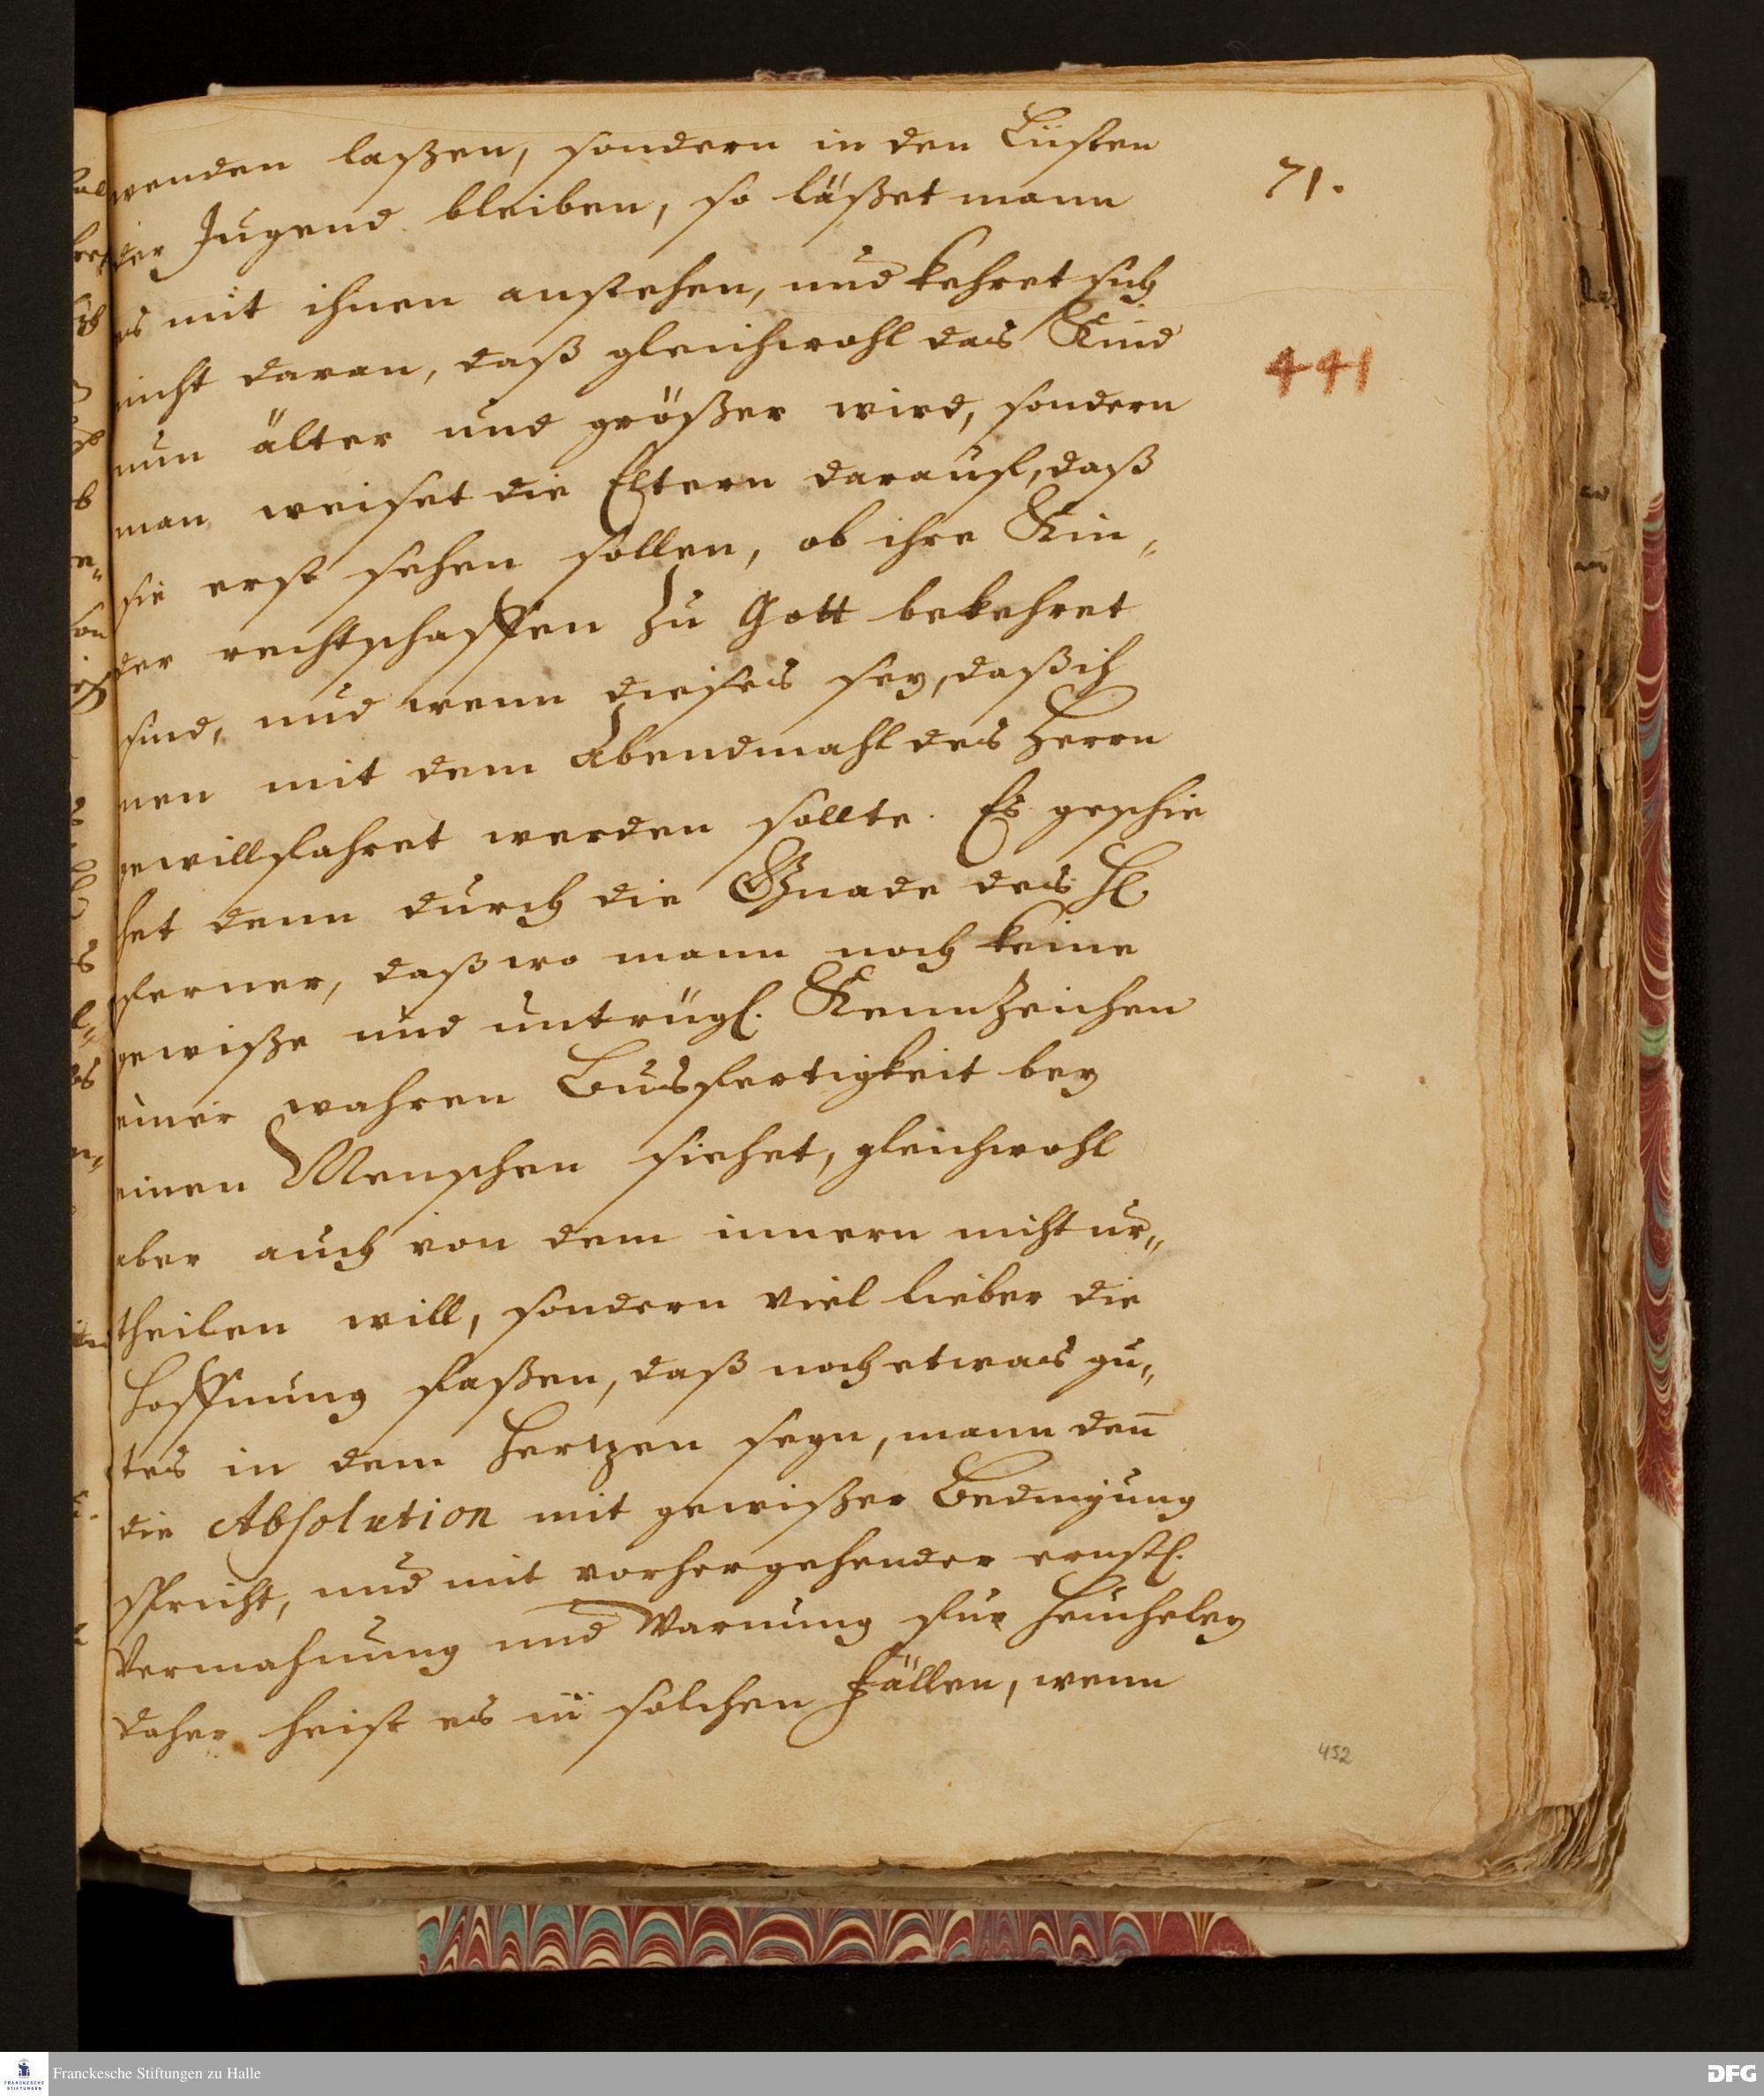 wenden laßen, sondern in den Lüsten
71.
der Jugend bleiben, so läßet mann
es mit ihnen anstehen, und kehret sich
nicht daran, daß gleichwohl das Kind
441
nun älter und größer wird, sondern
man weiset die Eltern darauf, daß
sie erst sehen sollen, ob ihre Kin„
der rechtschaffen zu Gott bekehret
sind, und wenn dieses sey, daß ih
nen mit dem Abendmahl des Herrn
gewillfahret werden sollte. Es geschie
het denn durch die Gnade des H.
ferner, daß wo mann noch keine
gewiße und untrügl. Kennzeichen
einer wahren Busfertigkeit bey
einen Menschen siehet, gleichwohl
aber auch von dem innern nicht ur„
theilen will, sondern viel lieber die
Hoffnung faßen, daß noch etwas gu„
tes in dem Hertzen seyn, mann den̄
die Absolution mit gewißer Bedingung
spricht, und mit vorhergehender ernstl.
Vermahnung und Warnung für Heucheley
daher heist es in solchen Fällen, wenn
452
Franckesche Stiftungen zu Halle
DFG